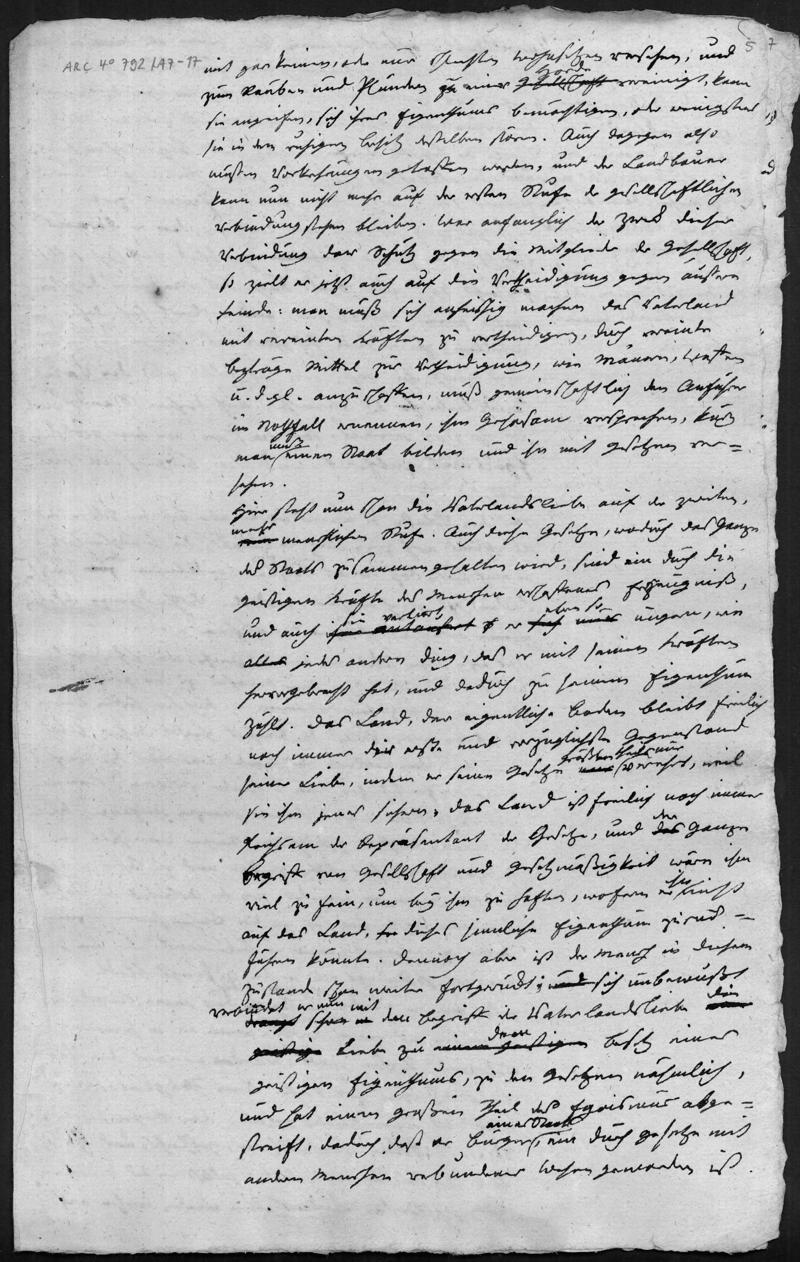 5 7
ARC 4° 792 / A7-17
mit gar keinen, oder nur schlechten Wohnsitzen versehen, und
zum Rauben und Plündern zu einer Gesellschaft Horde vereinigt, kann
sie angreifen, sich ihres Eigenthums bemächtigen, oder wenigstens
sie in dem ruhigen Besitz desselben stören. Auch dagegen also
müssen Vorkehrungen getroffen werden, und der Landbauer
kann nun nicht mehr auf der ersten Stufe der gesellschaftlichen
Verbindung stehen bleiben. War anfänglich der Zweck dieser
Verbindung der Schutz gegen die Mitglieder der Gesellschaft,
so zielt er jetzt auch auf die Vertheidigung gegen äussere
Feinde: man muß sich anheischig machen das Vaterland
mit vereinten Kräften zu vertheidigen, durch vereinte
Beyträge Mittel zur Vertheidigung, wie Mauern, Waffen
u. dgl. anzuschaffen, muß gemeinschaftlich den Anführer
im Nothfall ernennen, ihm Gehorsam versprechen, kurz
man muß einen Staat bilden und ihn mit Gesetzen ver=
sehen.
Hier steht nun schon die Vaterlandsliebe auf der zweiten,
mehr menschlichen Stufe. Auch diese Gesetze, wodurch das Ganze
des Staats zusammengehalten wird, sind ein durch die
geistigen Kräfte des Menschen erschaffenes Erzeugniß,
und auch sie verliert er eben so ungern, wie
alles jedes andere Ding, das er mit seinen Kräften
hervorgebracht hat, und dadurch zu seinem Eigenthum
zählt. Das Land, der eigentliche Boden bleibt freilich
noch immer der erste und vorzüglichste Gegenstand
seiner Liebe, indem er seine Gesetze größtentheils nur verehrt, weil
sie ihm jenes sichern; das Land ist freilich noch immer
gleichsam der Repräsentant der Gesetze, und das der ganze
Begriff von Gesellschaft und Gesetzmäßigkeit wäre ihm
viel zu fein, um bey ihm zu haften, wofern er ihn nicht
auf das Land, dieses sinnliche Eigenthum zurück=
führen könnte. Dennoch aber ist der Mensch in diesem
Zustande schon weiter fortgerückt; und sich unbewußt
verbindet er nun mit dem Begriff der Vaterlandsliebe die
geistige Liebe zu einem geistigen dem Besitz eines
geistigen Eigenthums, zu den Gesetzen nähmlich,
und hat einen großen Theil des Egoismus abge=
streift, dadurch daß er Bürger eines Staats, ein durch Gesetze mit
andern Menschen verbundenes Wesen geworden ist.